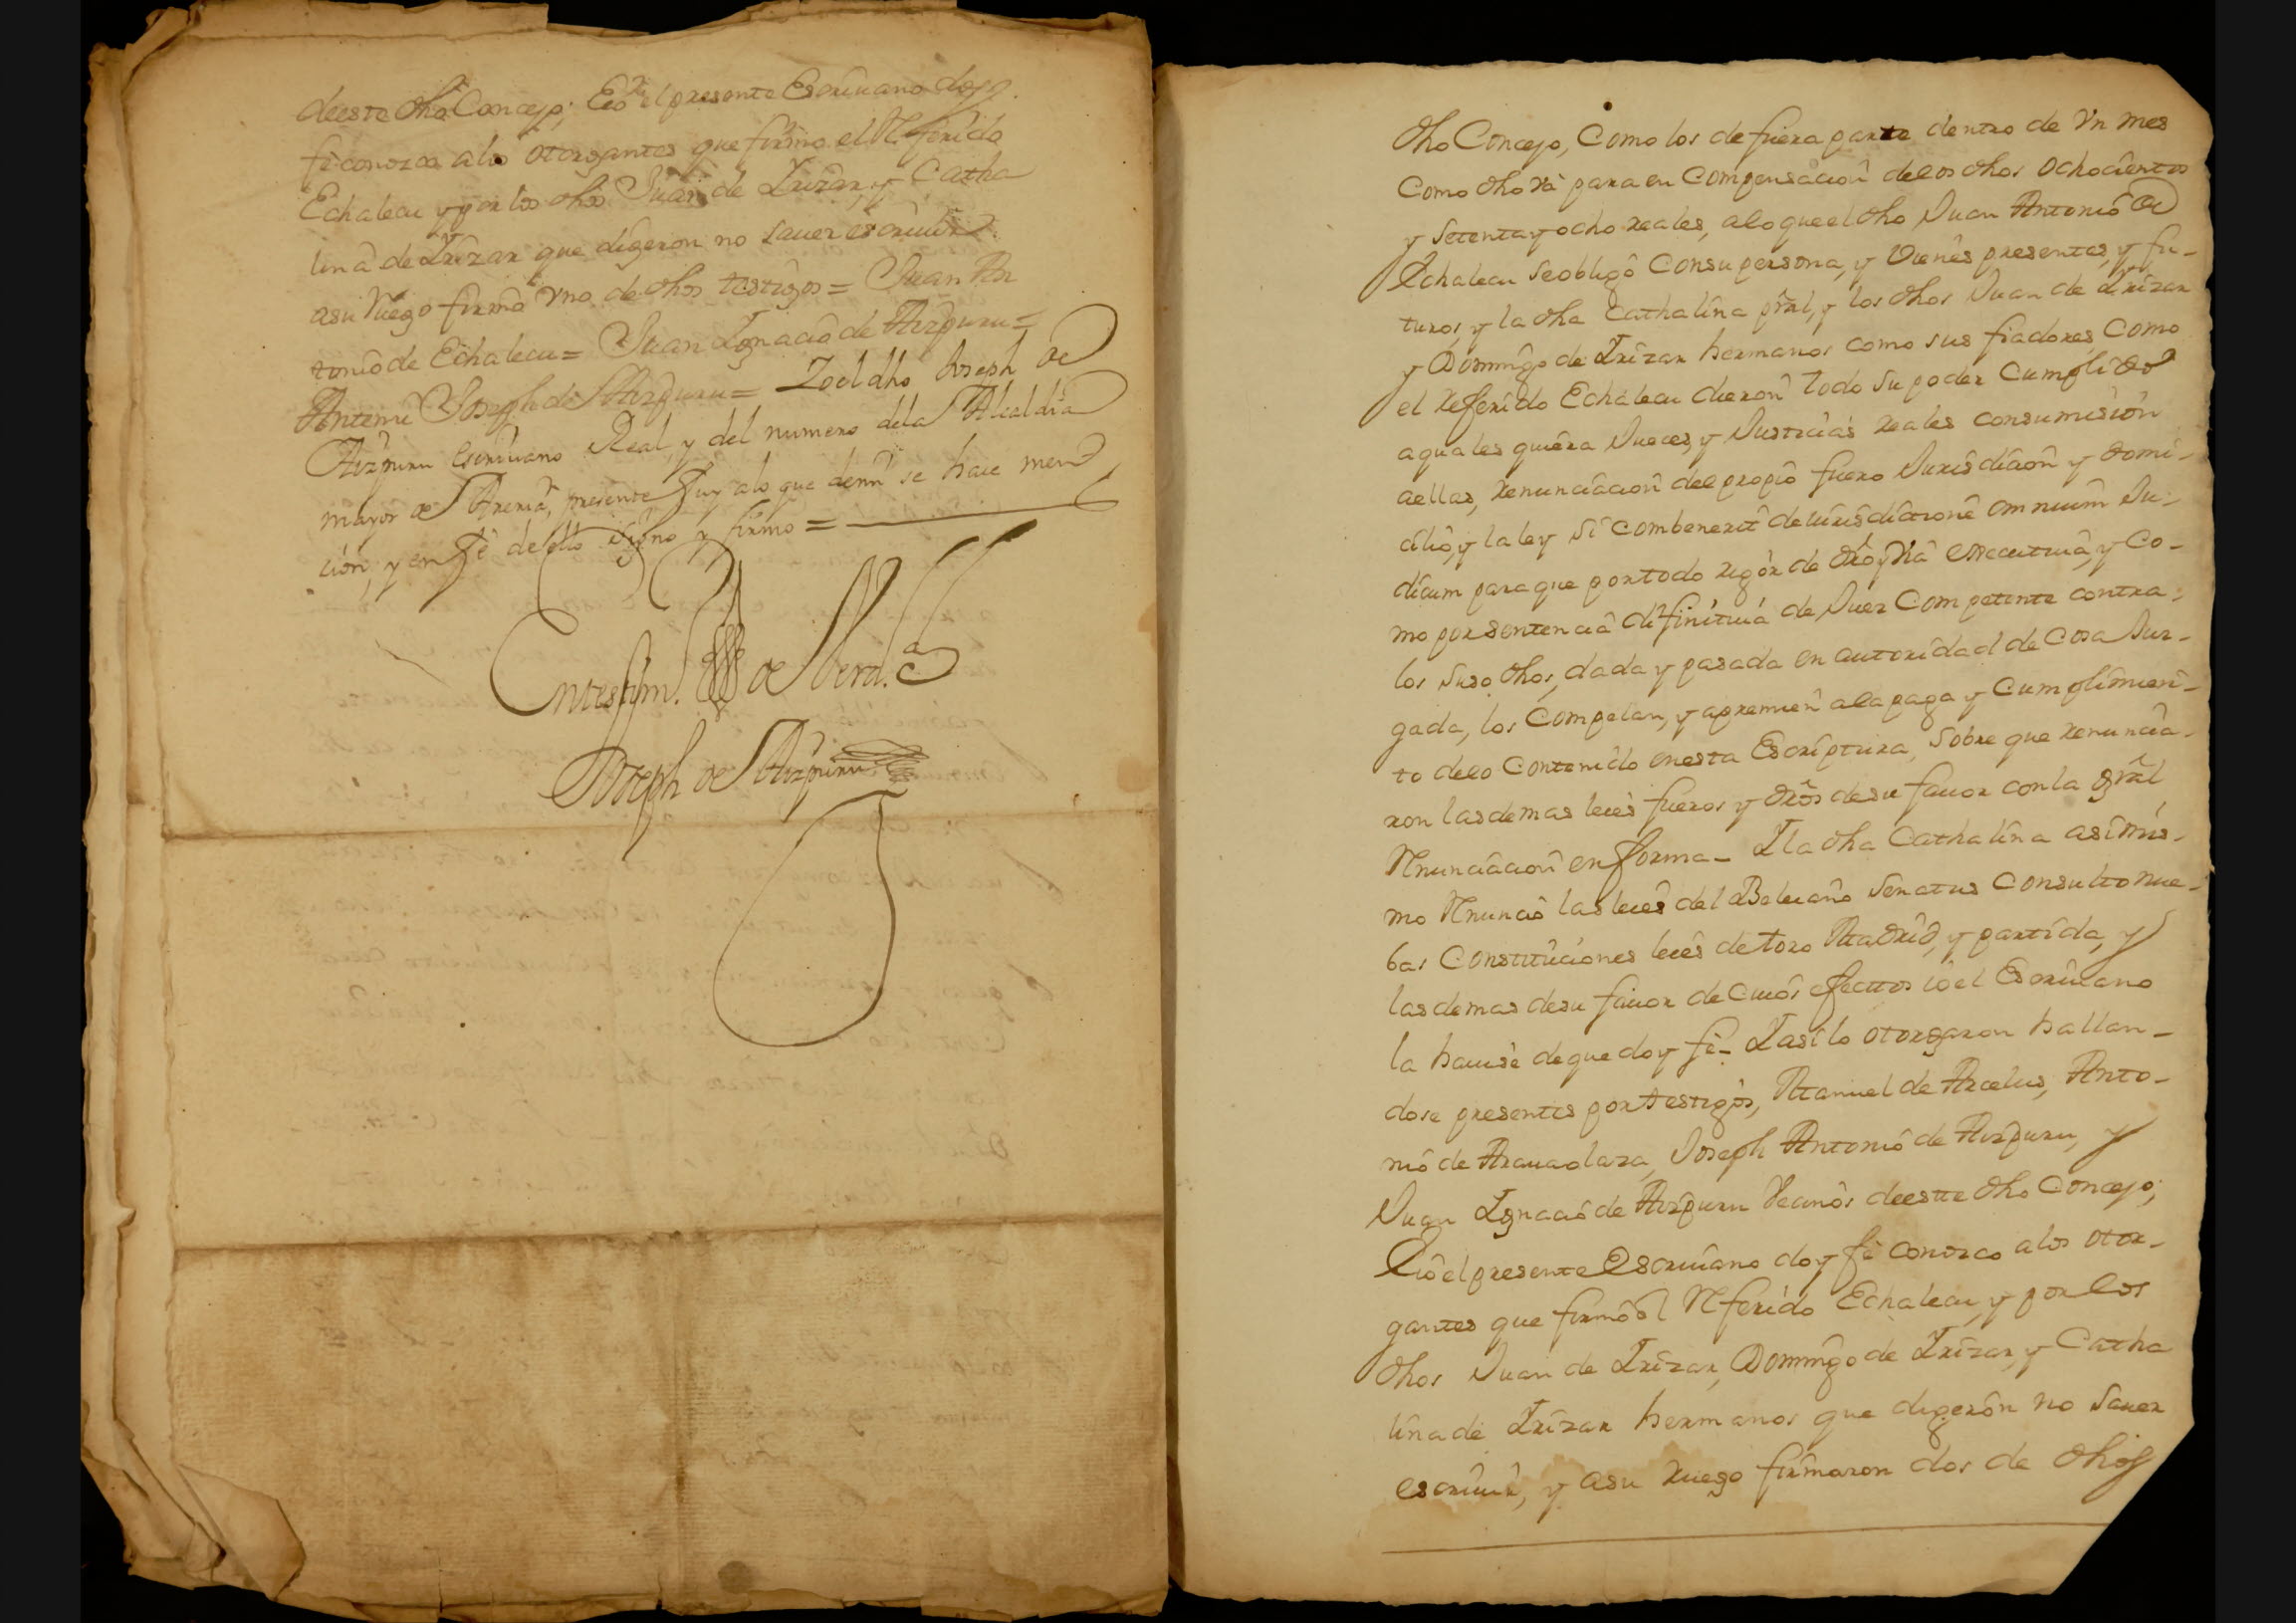 deeste dho Concejo; E io el presente Escriuano doy
fe conozco a los otorgantes que firmo el Referido
Echalecu y por los dhos Juan de Irizar, y Catha
lina de Irizar que digeron no sauer escriuir
a su Ruego firmó Vno de dhos testigos = Juan An
tonio de Echalecu = Juan Ignacio de Aizpuru =
Antemi Joseph de Aizpuru = Io el dho Joseph de
Aizpuru Escriuano Real, y del numero dela Alcaldia
mayor de Areria, presente fuy alo que demi se haze men
cion, y en fe de ello signo y firmo =
En testim.º de Verd.
Joseph de Aizpuru
dho Concejo, Como los de fuera parte dentro de Vn mes
Como dho vá para en Compensacion de los dhos ochocientos
y Setenta y ocho reales, alo que el dho Juan Antonio de
Echalecu se obligó Con su persona, y Vienes presentes, y fu-
turos, y la dha Cathalina prál, y los dhos Juan de Irizar
y Domingo de Irizar hermanos como sus fiadores, Como
el Referido Echalecu dieron todo su poder Cumplido
a quales quiera Jueces, y Justicias reales consumision
aellas, renunciacion del propio fuero Jurisdicion y domi-
cilio, y la ley Si combenerit de iurisdictione omnium Ju-
dicum para que por todo rigor de dro y via executiua, y Co-
mo por sentencia difinitiua de Juez Competente contra
los Suso dhos, dada y pasada en autoridad de Cosa Juz-
gada, los Compelan, y apremien ala paga y Cumplimien-
to delo Contenido enesta Escriptura, Sobre que renuncia-
ron las demas leies fueros y dros de su fauor con la grál
Renunciacion en forma - I la dha Cathalina asimis-
mo Renunció las leies del Beleiano Senatus Consulto nue-
bas Constituciones leies de toro Madrid, y partida, y
las demas de su fauor de cuios efectos io el Escriuano
la hauisé de que doy fe - I asi lo otorgaron hallan-
dose presentes por testigos, Manuel de Arcelus, Anto-
nio de Araucolaza, Joseph Antonio de Aizpuru, y
Juan Ignacio de Aizpuru Vecinos deeste dho Concejo;
E io el presente Escriuano doy fe conozco a los otor-
gantes que firmó el Referido Echalecu, y por los
dhos Juan de Irizar, Domingo de Irizar, y Catha
lina de Irizar hermanos que digeron no Sauer
escriuir, y a su ruego firmaron dos de dhos